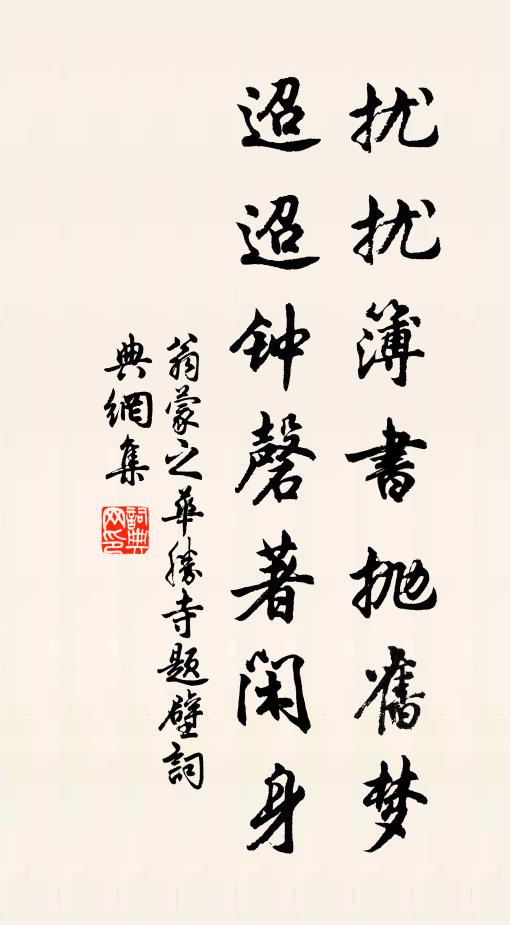 扰扰簿书抛舊梦
迢迢钟磬著闲身
翁蒙之華勝寺题壁詞
典網集
詞典网印